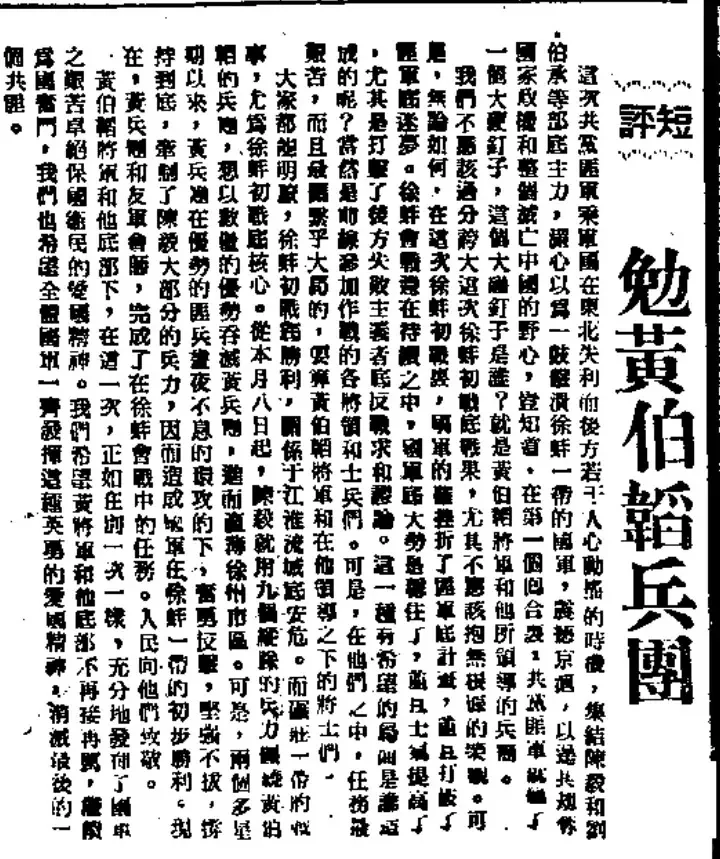 短評
勉黃伯韜兵團
這次共黨匪軍乘軍國在東北失利而後方若干人心動搖的時機，集結陳毅和劉
伯承等部底主力，滿心以爲一鼓擊潰徐蚌一帶的國軍，震撼京滬，以遂其奪
國家政權和整個滅亡中國的野心，豈知道，在第一個囘合裏，共黨匪軍就碰了
一個大硬釘子，這個大硬釘子是誰？就是黃伯韜將軍和他所領導的兵團。
我們不應該過分誇大這次徐蚌初戰底戰果，尤其不應該抱無根據的樂觀。可
是，無論如何，在這次徐蚌初戰裏，國軍的確挫折了匪軍底計畫，並且打破了
匪軍底迷夢。徐蚌會戰還在待續之中，國軍底大勢是穩住了，並且士氣提高了
，尤其是打擊了後方失敗主義者底反戰求和謬論。這一種有希望的局面是誰造
成的呢？當然是前線參加作戰的各將領和士兵們。可是，在他們之中，任務最
艱苦，而且最關繫乎大局的，要算黃伯韜將軍和在他領導之下的將士們．
大家都能明瞭，徐蚌初戰底勝利，關係于江淮流域底安危。而碾莊一帶的戰
事，尤爲徐蚌初戰底核心。從本月八日起，陳毅就用九個縱隊的兵力圍繞黃伯
韜的兵團，想以數量的優勢吞滅黃兵團，進而直薄徐州市區。可是，兩個多星
期以來，黃兵團在優勢的匪兵晝夜不息的環攻的下，奮勇反擊，堅強不拔，撐
持到底，牽制了陳毅大部分的兵力，因而造成國軍在徐蚌一帶的初步勝利。現
在，黃兵團和友軍會師，完成了在徐蚌會戰中的任務。人民向他們致敬。
黃伯韜將軍和他底部下，在這一次，正如在別一次一樣，充分地發揮了國軍
之艱苦卓絕保國衛民的愛國精神。我們希望黃將軍和他底部下再接再厲，繼續
爲國奮鬥，我們也希望全體國軍一齊發揮這種英勇的愛國精神，消滅最後的一
個共匪。